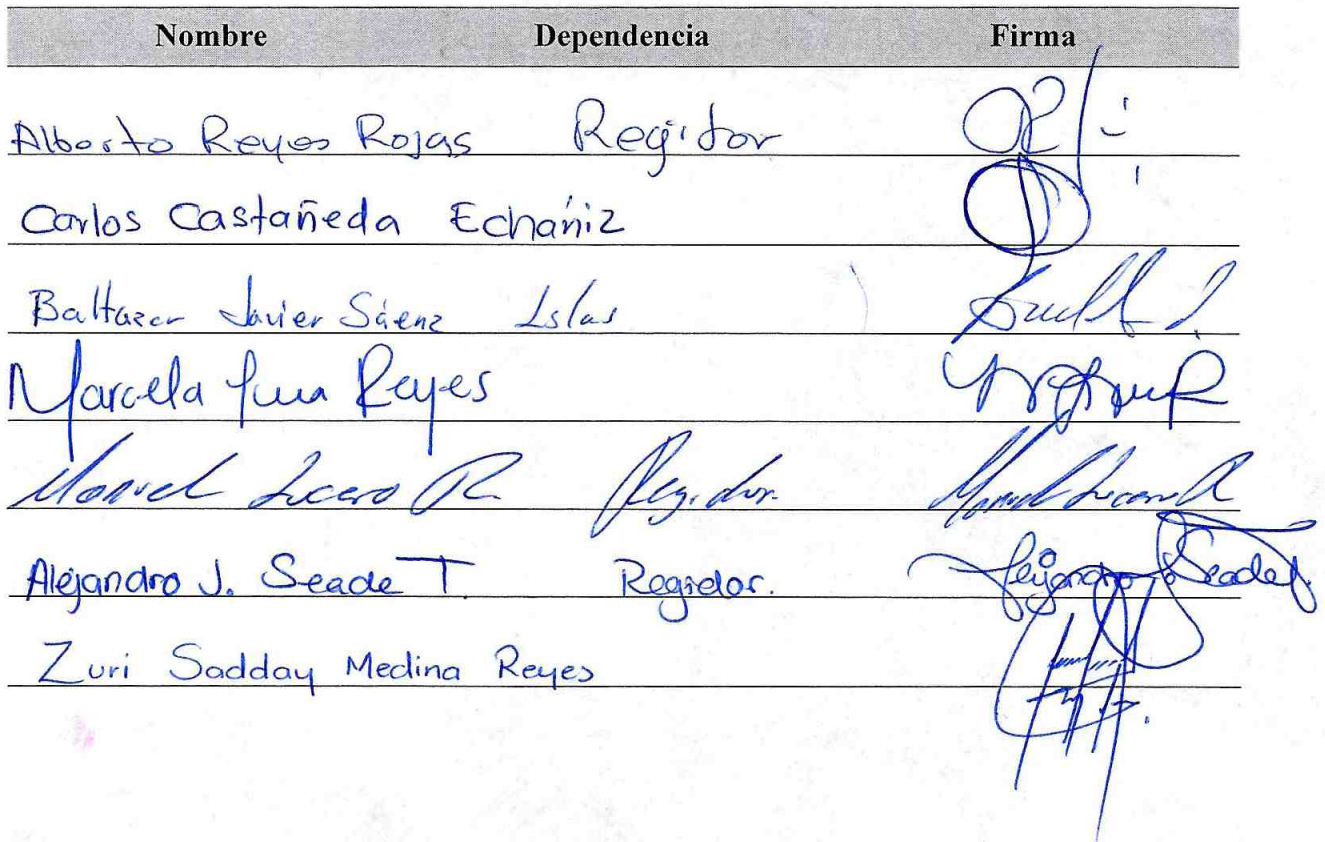 Nombre Dependencia Firma
Alberto Reyes Rojas Regidor
Carlos Castañeda Echániz
Baltazar Javier Sáenz Islas
Marcela Reyes
Manuel Lucero R. Regidor. Manuel Lucero R
Alejandro J. Seade T. Regidor. Alejandro J. Seade T.
Zuri Sadday Medina Reyes